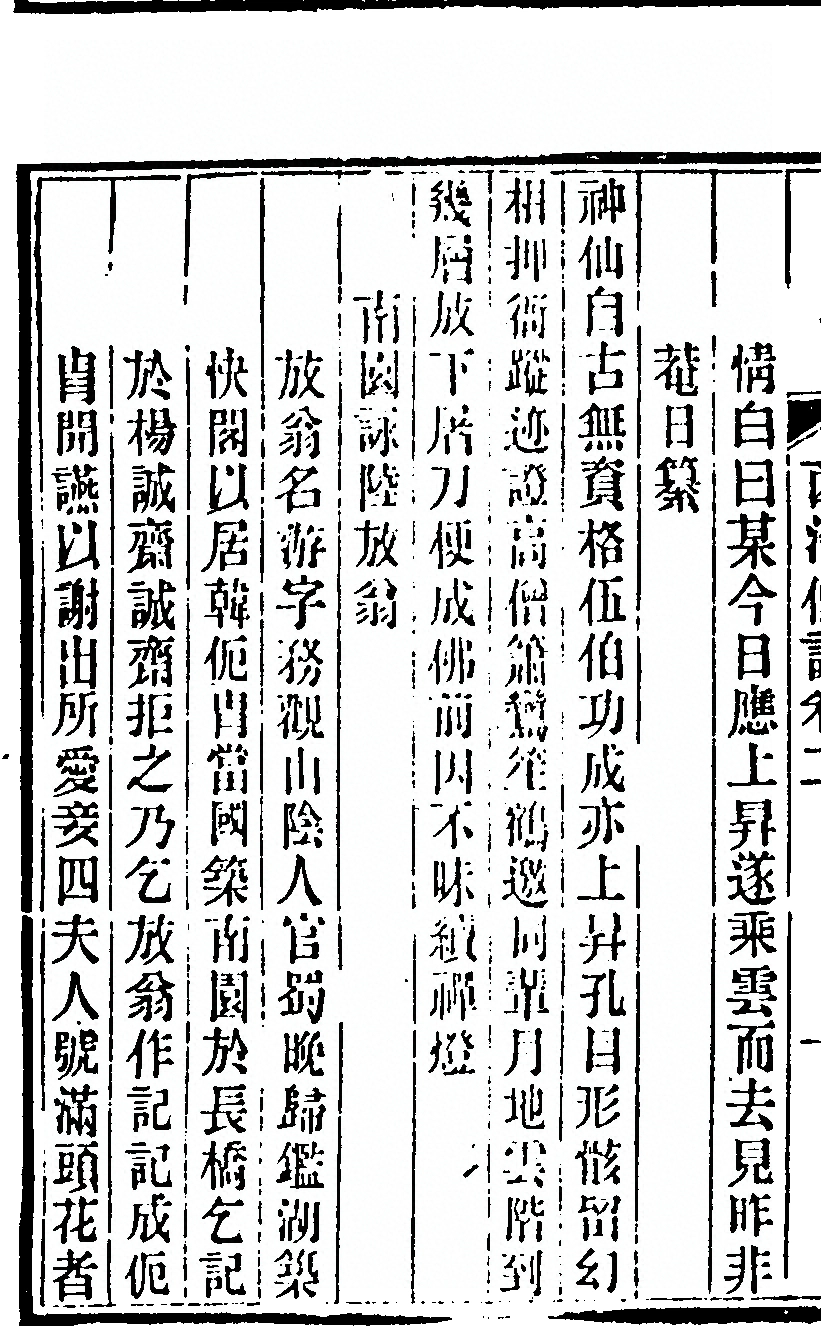 情白曰某今日應上昇遂乘雲而去見昨非
菴日纂
神仙自古無資格伍伯功成亦上昇孔目形骸留幻
相押衙蹤迹證高僧簫鸞笙鶴邀同輩月地雲階到
幾層放下屠刀便成佛前因不昧續禪燈
南園詠陸放翁
放翁名游字務觀山陰人官蜀晚歸鑑湖築
快閣以居韓侂冑當國築南園於長橋乞記
於楊誠齋誠齋拒之乃乞放翁作記記成侂
冑開讌以謝出所愛妾四夫人號滿頭花者